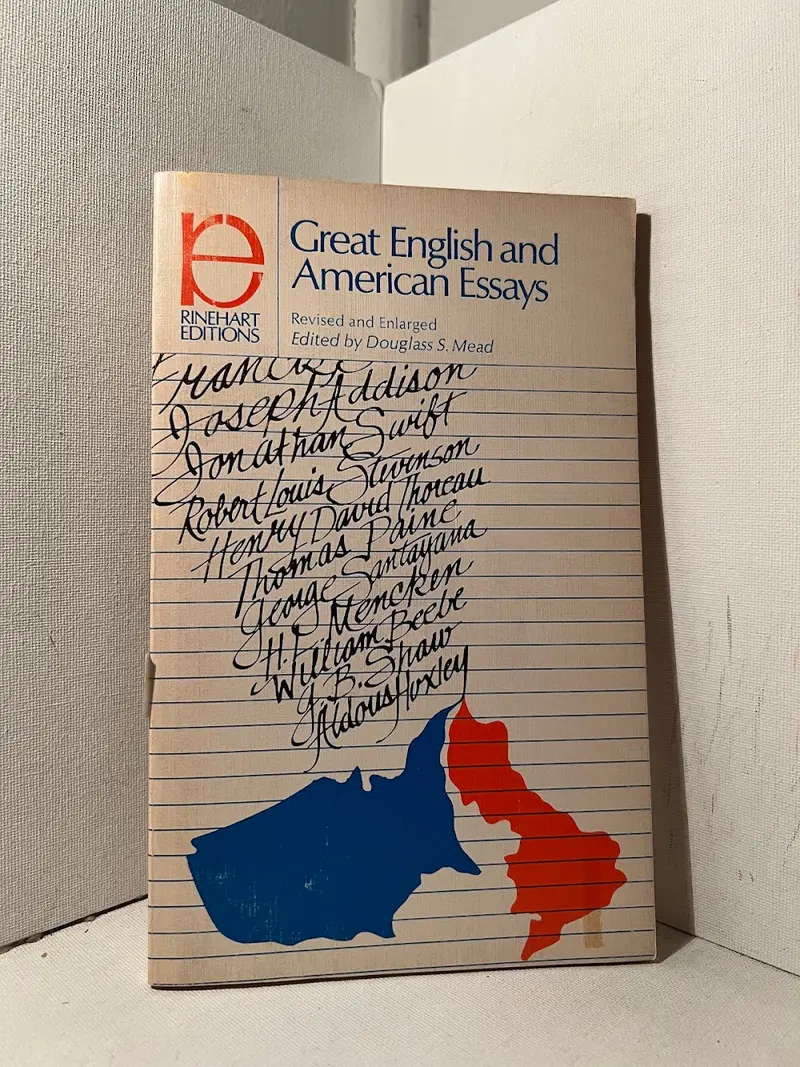 re
RINEHART
EDITIONS
Great English and
American Essays
Revised and Enlarged
Edited by Douglass S. Mead
Joseph Addison
Jonathan Swift
Robert Louis Stevenson
Henry David Thoreau
Thomas Paine
George Santayana
H. L. Mencken
William Beebe
G. B. Shaw
Aldous Huxley